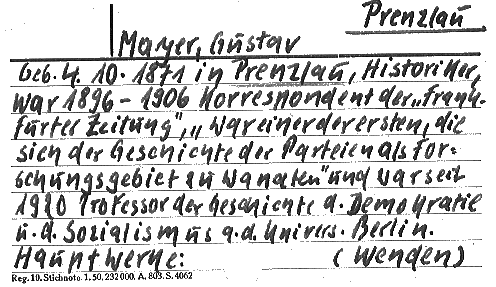 Prenzlau
Mayer, Gustav
Geb. 4. 10. 1871 in Prenzlau, Historiker,
war 1896 - 1906 Korrespondent der „Frank-
furter Zeitung", „war einer der ersten, die
sich der Geschichte der Parteien als For-
schungsgebiet zu wandten" und war seit
1920 Professor der Geschichte d. Demokratie
u. d. Sozialismus a. d. Univers. Berlin.
Hauptwerke: (wenden)
Reg. 10. Stichnote. 1. 50, 232 000. A. 803. S. 4062